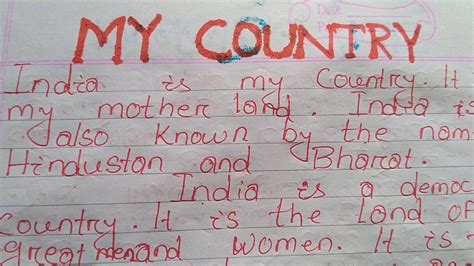 MY COUNTRY
India is my Country. It
my mother land. India is
also known by the nam
Hindustan and Bharat.
India is a democ
Country. It is the land of
great men and women. It is